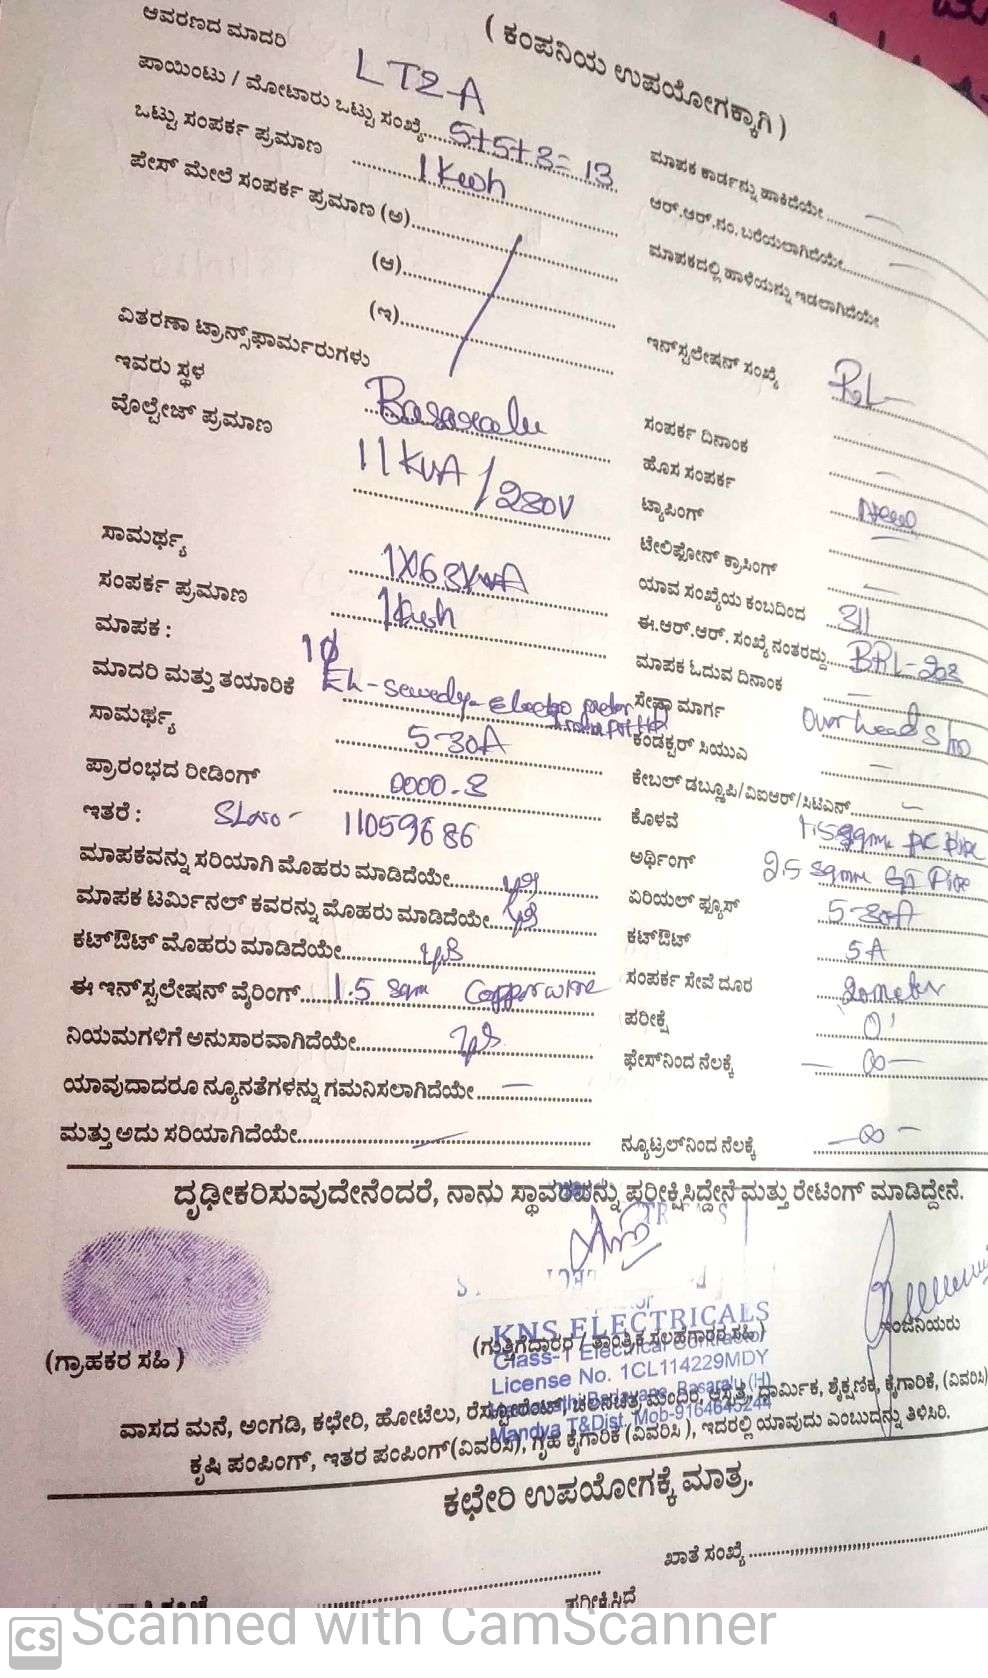 ( ಕಂಪನಿಯ ಉಪಯೋಗಕ್ಕಾಗಿ )
ಆವರಣದ ಮಾದರಿ LT2-A
ಪಾಯಿಂಟು / ಮೋಟಾರು ಒಟ್ಟು ಸಂಖ್ಯೆ 5+5+3= 13
ಒಟ್ಟು ಸಂಪರ್ಕ ಪ್ರಮಾಣ 1 Kwh
ಪೇಸ್ ಮೇಲೆ ಸಂಪರ್ಕ ಪ್ರಮಾಣ (ಅ)
(ಆ)
(ಇ)
ವಿತರಣಾ ಟ್ರಾನ್ಸ್‌ಫಾರ್ಮರುಗಳು
ಇವರು ಸ್ಥಳ Basaralu
ವೊಲ್ಟೇಜ್ ಪ್ರಮಾಣ 11 KVA / 230V
ಸಾಮರ್ಥ್ಯ 1X63KVA
ಸಂಪರ್ಕ ಪ್ರಮಾಣ 1 Kwh
ಮಾಪಕ :
ಮಾದರಿ ಮತ್ತು ತಯಾರಿಕೆ 1ϕ EL-sewedy-electro meter India Pvt Ltd
ಸಾಮರ್ಥ್ಯ 5-30A
ಪ್ರಾರಂಭದ ರೀಡಿಂಗ್ 0000.3
ಇತರೆ : SLNo- 11059686
ಮಾಪಕವನ್ನು ಸರಿಯಾಗಿ ಮೊಹರು ಮಾಡಿದೆಯೇ
ಮಾಪಕ ಟರ್ಮಿನಲ್ ಕವರನ್ನು ಮೊಹರು ಮಾಡಿದೆಯೇ
ಕಟ್‌ಔಟ್ ಮೊಹರು ಮಾಡಿದೆಯೇ
ಈ ಇನ್‌ಸ್ಟಲೇಷನ್ ವೈರಿಂಗ್ 1.5 sqm Copper wire
ನಿಯಮಗಳಿಗೆ ಅನುಸಾರವಾಗಿದೆಯೇ
ಯಾವುದಾದರೂ ನ್ಯೂನತೆಗಳನ್ನು ಗಮನಿಸಲಾಗಿದೆಯೇ —
ಮತ್ತು ಅದು ಸರಿಯಾಗಿದೆಯೇ —
ಮಾಪಕ ಕಾರ್ಡನ್ನು ಹಾಕಿದೆಯೇ —
ಆರ್.ಆರ್.ನಂ. ಬರೆಯಲಾಗಿದೆಯೇ —
ಮಾಪಕದಲ್ಲಿ ಹಾಳೆಯನ್ನು ಇಡಲಾಗಿದೆಯೇ
ಇನ್‌ಸ್ಟಲೇಷನ್ ಸಂಖ್ಯೆ
ಸಂಪರ್ಕ ದಿನಾಂಕ
ಹೊಸ ಸಂಪರ್ಕ —
ಟ್ಯಾಪಿಂಗ್ New
ಟೇಲಿಫೋನ್ ಕ್ರಾಸಿಂಗ್
ಯಾವ ಸಂಖ್ಯೆಯ ಕಂಬದಿಂದ —
ಈ.ಆರ್.ಆರ್. ಸಂಖ್ಯೆ ನಂತರದ್ದು
ಮಾಪಕ ಓದುವ ದಿನಾಂಕ
ಸೇವಾ ಮಾರ್ಗ Over head
ಕಂಡಕ್ಟರ್ ಸಿಯುಎ —
ಕೇಬಲ್ ಡಬ್ಲೂಪಿ/ವಿಐಆರ್/ಸಿಟಿಎನ್ —
ಕೊಳವೆ 1.5 sqmm PVC Pipe
ಅರ್ಥಿಂಗ್ 2.5 sqmm GI Pipe
ಏರಿಯಲ್ ಫ್ಯೂಸ್ 5-30A
ಕಟ್‌ಔಟ್ 5A
ಸಂಪರ್ಕ ಸೇವೆ ದೂರ 20meter
ಪರೀಕ್ಷೆ
ಫೇಸ್‌ನಿಂದ ನೆಲಕ್ಕೆ — ∞ —
ನ್ಯೂಟ್ರಲ್‌ನಿಂದ ನೆಲಕ್ಕೆ — ∞ —
ದೃಢೀಕರಿಸುವುದೇನೆಂದರೆ, ನಾನು ಸ್ಥಾವರವನ್ನು ಪರೀಕ್ಷಿಸಿದ್ದೇನೆ ಮತ್ತು ರೇಟಿಂಗ್ ಮಾಡಿದ್ದೇನೆ.
KNS ELECTRICALS
(ಗುತ್ತಿಗೆದಾರರ / ತಾಂತ್ರಿಕ ಸಲಹೆಗಾರರ ಸಹಿ)
Class-1 Electrical Contractor
License No. 1CL114229MDY
Mandya T&Dist, Mob-9164645244
ಇಂಜಿನಿಯರು
(ಗ್ರಾಹಕರ ಸಹಿ )
ವಾಸದ ಮನೆ, ಅಂಗಡಿ, ಕಛೇರಿ, ಹೋಟೆಲು, ರೆಸ್ಟೋರೆಂಟ್, ಚಲನಚಿತ್ರ ಮಂದಿರ, ಆಸ್ಪತ್ರೆ, ಧಾರ್ಮಿಕ, ಶೈಕ್ಷಣಿಕ, ಕೈಗಾರಿಕೆ, (ವಿವರಿಸಿ)
ಕೃಷಿ ಪಂಪಿಂಗ್, ಇತರ ಪಂಪಿಂಗ್(ವಿವರಿಸಿ), ಗೃಹ ಕೈಗಾರಿಕೆ (ವಿವರಿಸಿ ), ಇದರಲ್ಲಿ ಯಾವುದು ಎಂಬುದನ್ನು ತಿಳಿಸಿರಿ.
ಕಛೇರಿ ಉಪಯೋಗಕ್ಕೆ ಮಾತ್ರ.
ಖಾತೆ ಸಂಖ್ಯೆ
ಪರೀಕ್ಷಿಸಿದೆ
CS Scanned with CamScanner